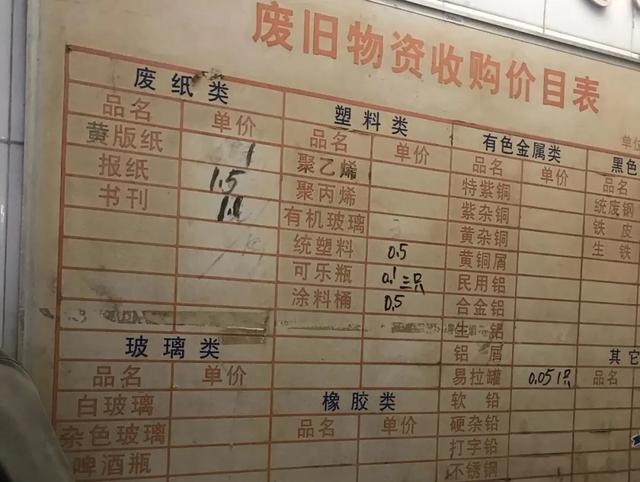 废旧物资收购价目表
单位
废纸类
品名 单价
黄版纸 1
报纸 1.5
书刊 1.1
塑料类
品名 单价
聚乙烯
聚丙烯
有机玻璃
统塑料 0.5
可乐瓶 0.1三只
涂料桶 0.5
有色金属类
品名 单价
特紫铜
紫杂铜
黄杂铜
黄铜屑
民用铝
合金铝
生铝
铝屑
易拉罐 0.051只
软铅
硬杂铅
打字铅
不锈钢
黑色
品名
统废钢
铁皮
生铁
玻璃类
品名 单价
白玻璃
杂色玻璃
啤酒瓶
橡胶类
品名 单价
其它
品名